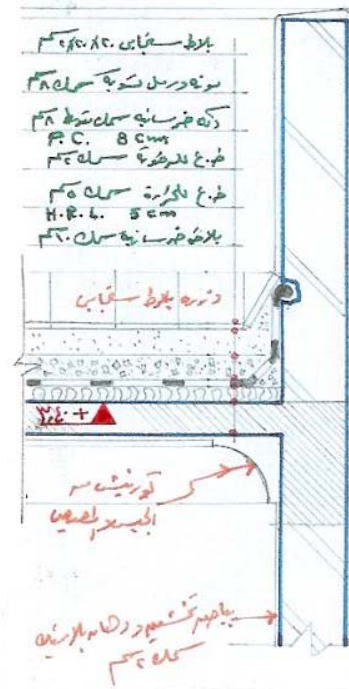 بلاط سنجابى ٢٠×٢٠×٢ سم
مونه ورمل تسويه سمك ٨ سم
دكه خرسانيه سمك متوسط ٨ سم
P.C. 8 cm
ط.ع للرطوبة سمك ٢ سم
ط.ع للحرارة سمك ٥ سم
H.R.L. 5 cm
بلاطه خرسانية سمك ١٠ سم
وزره بلاط سنجابى
٣٫٤٠ +
كورنيش من
الجبس المصيص
بياض تخشين ودهان بلاستيك
سمك ٢ سم